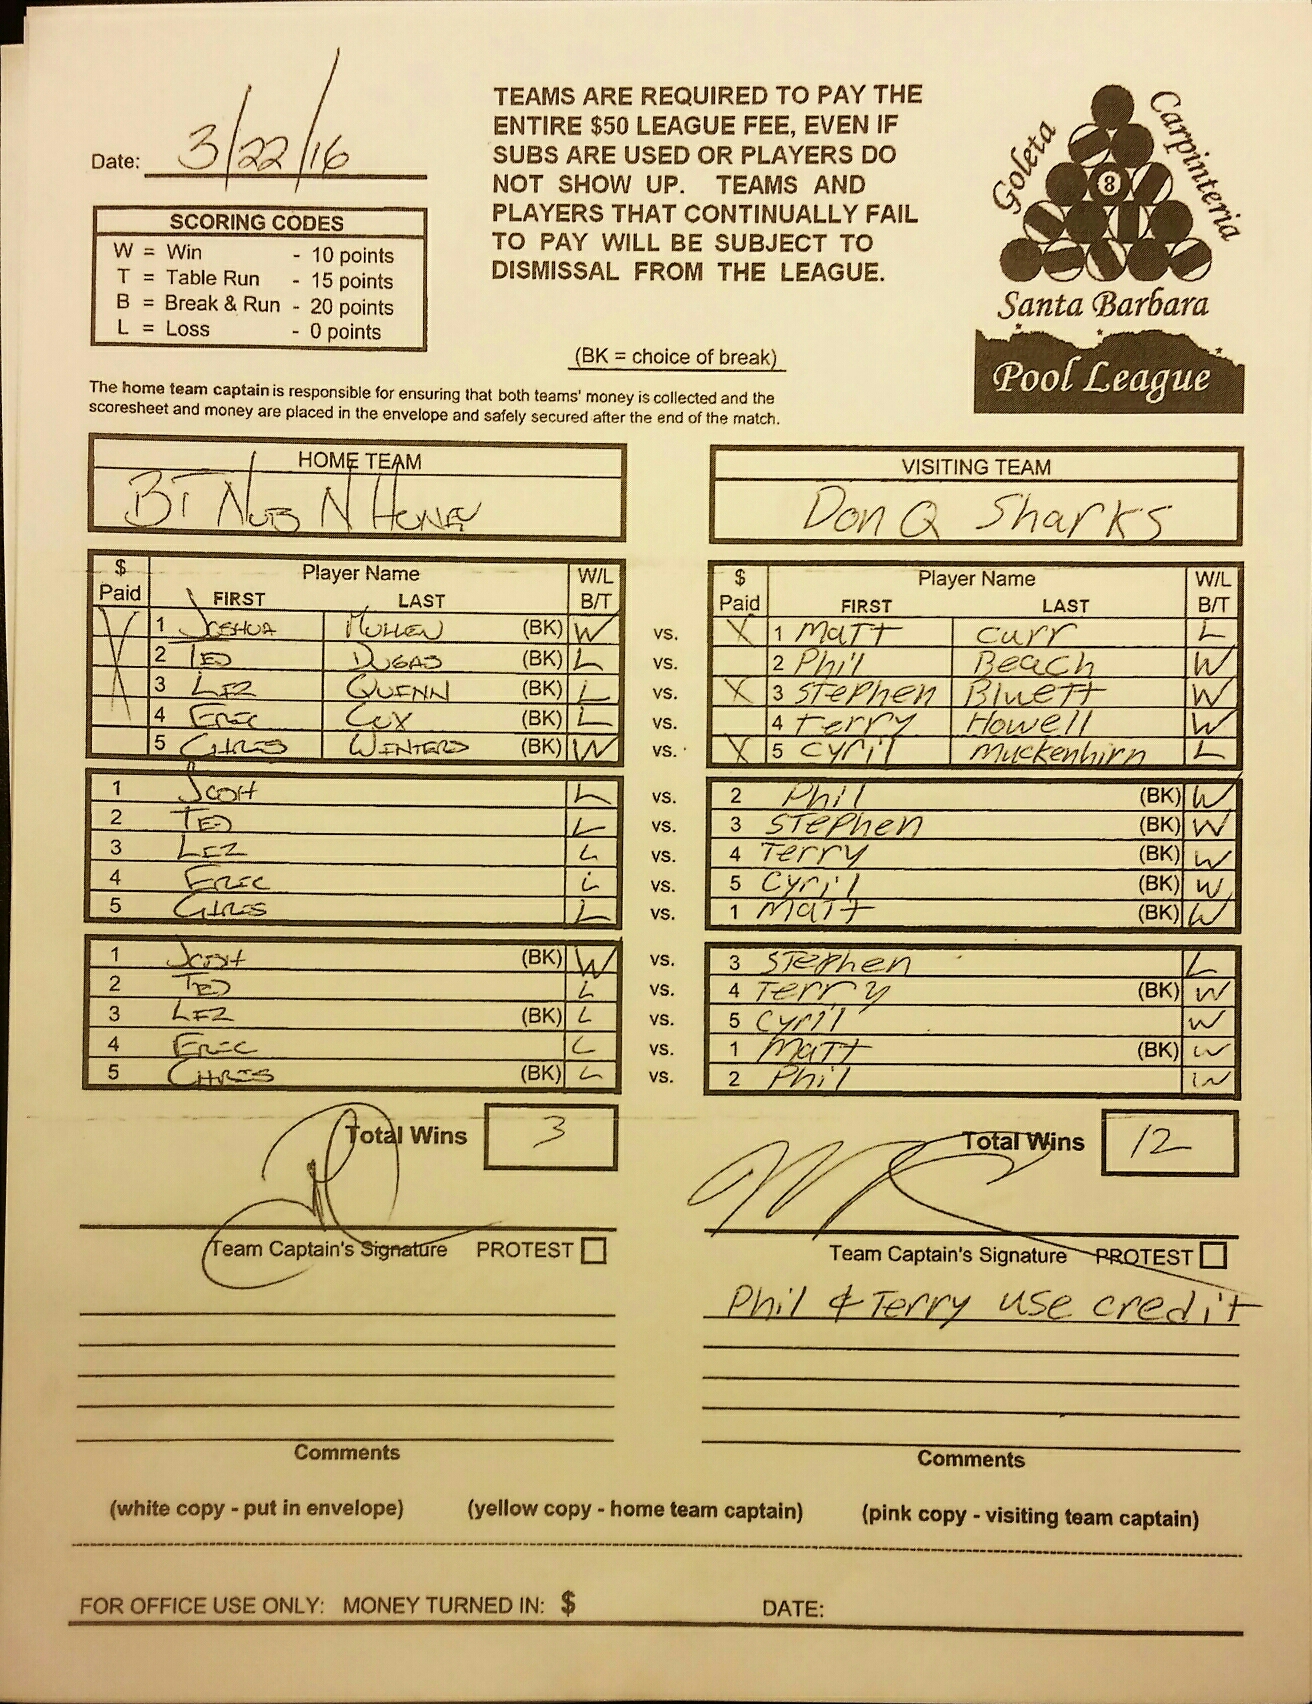 Date: 3/22/16
TEAMS ARE REQUIRED TO PAY THE
ENTIRE $50 LEAGUE FEE, EVEN IF
SUBS ARE USED OR PLAYERS DO
NOT SHOW UP. TEAMS AND
PLAYERS THAT CONTINUALLY FAIL
TO PAY WILL BE SUBJECT TO
DISMISSAL FROM THE LEAGUE.
Goleta
Carpinteria
8
Santa Barbara
Pool League
SCORING CODES
W = Win - 10 points
T = Table Run - 15 points
B = Break & Run - 20 points
L = Loss - 0 points
(BK = choice of break)
The home team captain is responsible for ensuring that both teams' money is collected and the
scoresheet and money are placed in the envelope and safely secured after the end of the match.
HOME TEAM VISITING TEAM
BT Nub N Hunny Don Q Sharks
$ Paid Player Name FIRST LAST W/L B/T $ Paid Player Name FIRST LAST W/L B/T
X 1 Joshua Mullen (BK) W vs. X 1 Matt Curr L
2 Ted Dugas (BK) L vs. 2 Phil Beach W
3 Lez Quinn (BK) L vs. X 3 Stephen Bluett W
4 Eric Cox (BK) L vs. 4 Terry Howell W
5 Chris Winters (BK) W vs. X 5 Cyril Muckenhirn L
1 Josh L vs. 2 Phil (BK) W
2 Ted L vs. 3 Stephen (BK) W
3 Lez L vs. 4 Terry (BK) W
4 Eric L vs. 5 Cyril (BK) W
5 Chris L vs. 1 Matt (BK) W
1 Josh (BK) W vs. 3 Stephen L
2 Ted L vs. 4 Terry (BK) W
3 Lez (BK) L vs. 5 Cyril W
4 Eric L vs. 1 Matt (BK) W
5 Chris (BK) L vs. 2 Phil W
Total Wins 3 Total Wins 12
Team Captain's Signature PROTEST Team Captain's Signature PROTEST
Phil & Terry use credit
Comments Comments
(white copy - put in envelope) (yellow copy - home team captain) (pink copy - visiting team captain)
FOR OFFICE USE ONLY: MONEY TURNED IN: $ DATE: